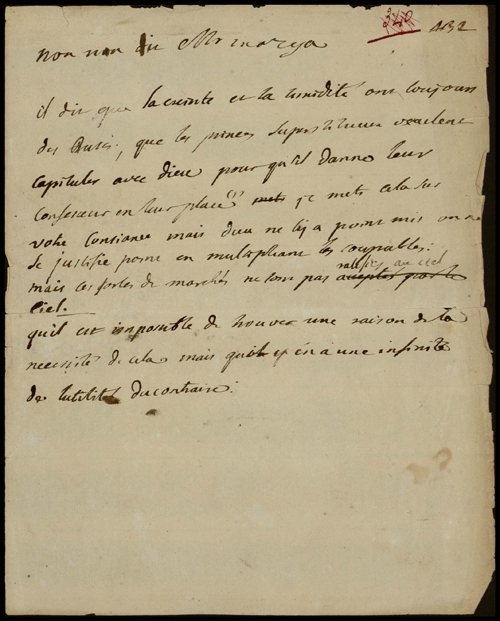 432
non non dit Mr
il dit que la crainte et la timidité ont toujours
des ; que les princes superstitieux veulent
Capituler avec dieu pour qu'il danne leur
Confesseur en leur place mets je mets cela sur
votre Confiance mais dieu ne l'y a point mis on ne
se justifie point en multipliant les coupables:
ratifiés au ciel
mais ces sortes de marchés ne sont pas acceptés par le
Ciel.
qu'il est impossible de trouver une raison de la
necessité de cela mais qu'il y en a une infinité
de lutilité du contraire: